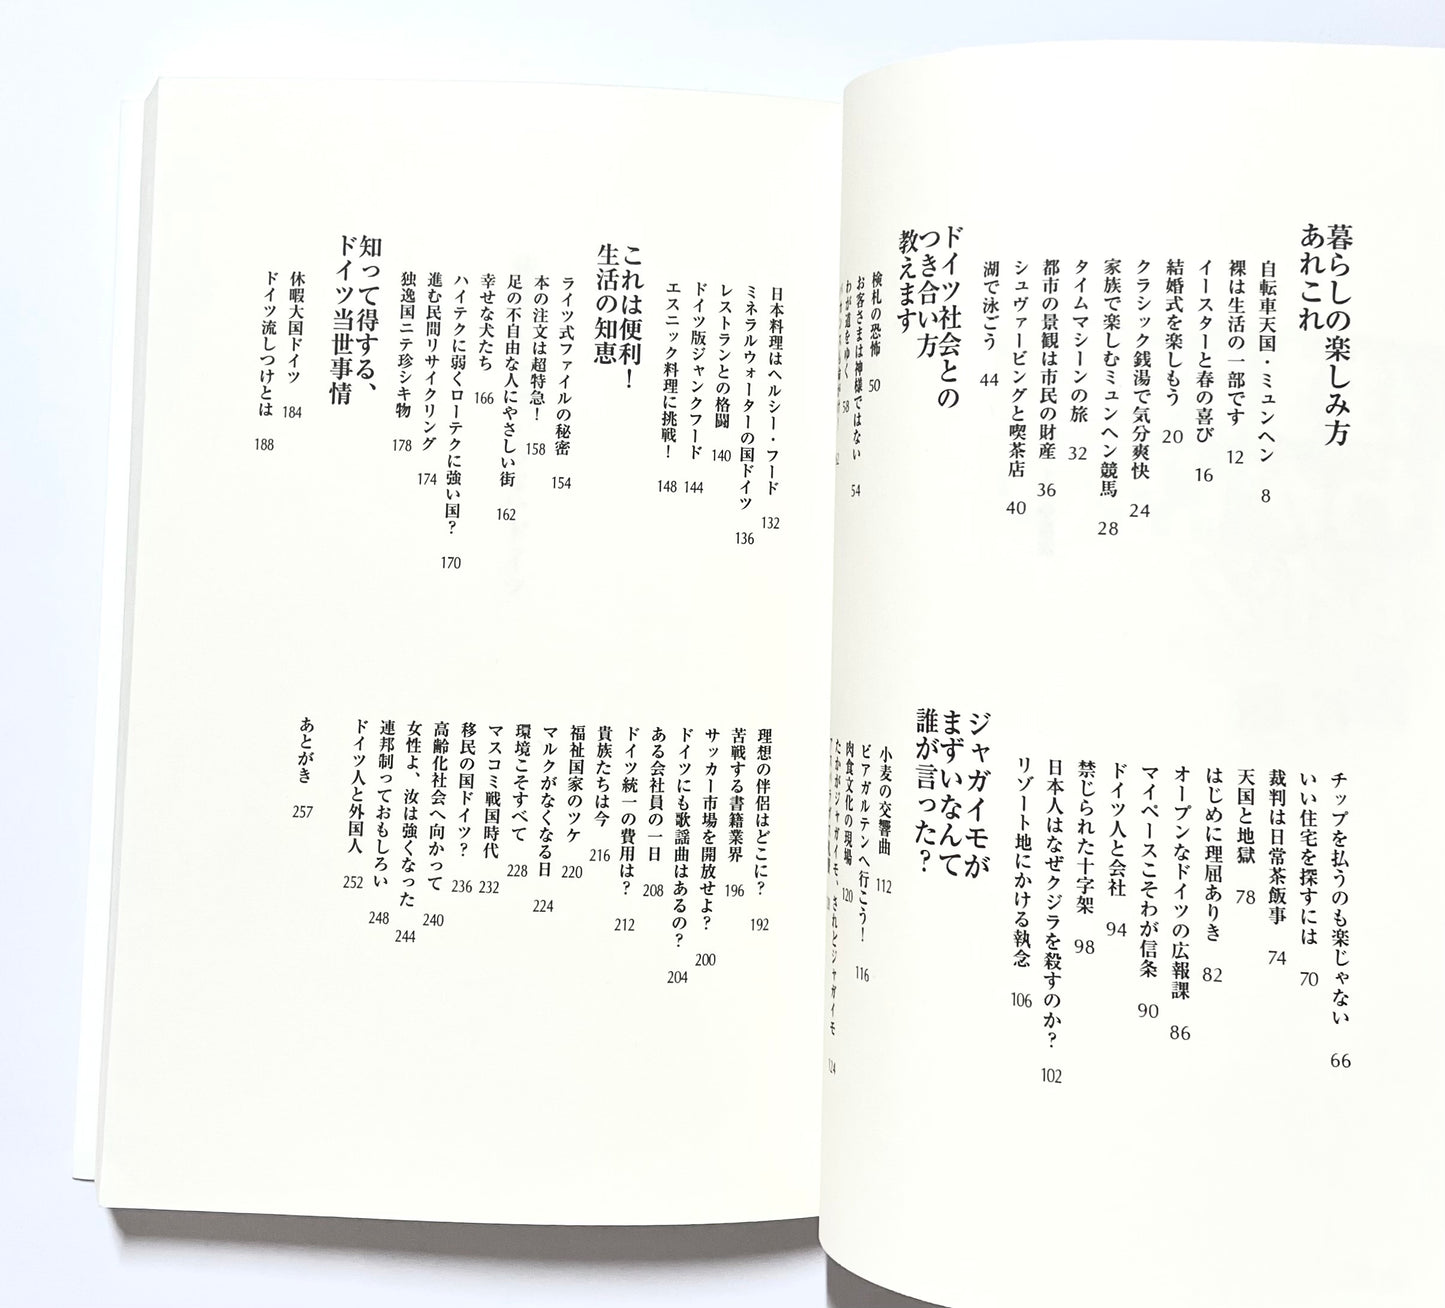 暮らしの楽しみ方
あれこれ
自転車天国・ミュンヘン 8
裸は生活の一部です 12
イースターと春の喜び 16
結婚式を楽しもう 20
クラシック銭湯で気分爽快 24
家族で楽しむミュンヘン競馬 28
タイムマシーンの旅 32
都市の景観は市民の財産 36
シュヴァービングと喫茶店 40
湖で泳ごう 44
ドイツ社会との
つき合い方
教えます
検札の恐怖 50
お客さまは神様ではない 54
わが道をゆく 58
チップを払うのも楽じゃない 66
いい住宅を探すには 70
裁判は日常茶飯事 74
天国と地獄 78
はじめに理屈ありき 82
オープンなドイツの広報課 86
マイペースこそわが信条 90
ドイツ人と会社 94
禁じられた十字架 98
日本人はなぜクジラを殺すのか? 102
リゾート地にかける執念 106
ジャガイモが
まずいなんて
誰が言った?
小麦の交響曲 112
ビアガルテンへ行こう! 116
肉食文化の現場 120
たかがジャガイモ、されどジャガイモ 124
日本料理はヘルシー・フード 132
ミネラルウォーターの国ドイツ 136
レストランとの格闘 140
ドイツ版ジャンクフード 144
エスニック料理に挑戦! 148
これは便利!
生活の知恵
ライツ式ファイルの秘密 154
本の注文は超特急! 158
足の不自由な人にやさしい街 162
幸せな犬たち 166
ハイテクに弱くローテクに強い国? 170
進む民間リサイクリング 174
独逸国ニテ珍シキ物 178
知って得する、
ドイツ当世事情
休暇大国ドイツ 184
ドイツ流しつけとは 188
理想の伴侶はどこに? 192
苦戦する書籍業界 196
サッカー市場を開放せよ? 200
ドイツにも歌謡曲はあるの? 204
ある会社員の一日 208
ドイツ統一の費用は? 212
貴族たちは今 216
福祉国家のツケ 220
マルクがなくなる日 224
環境こそすべて 228
マスコミ戦国時代 232
移民の国ドイツ? 236
高齢化社会へ向かって 240
女性よ、汝は強くなった 244
連邦制っておもしろい 248
ドイツ人と外国人 252
あとがき 257